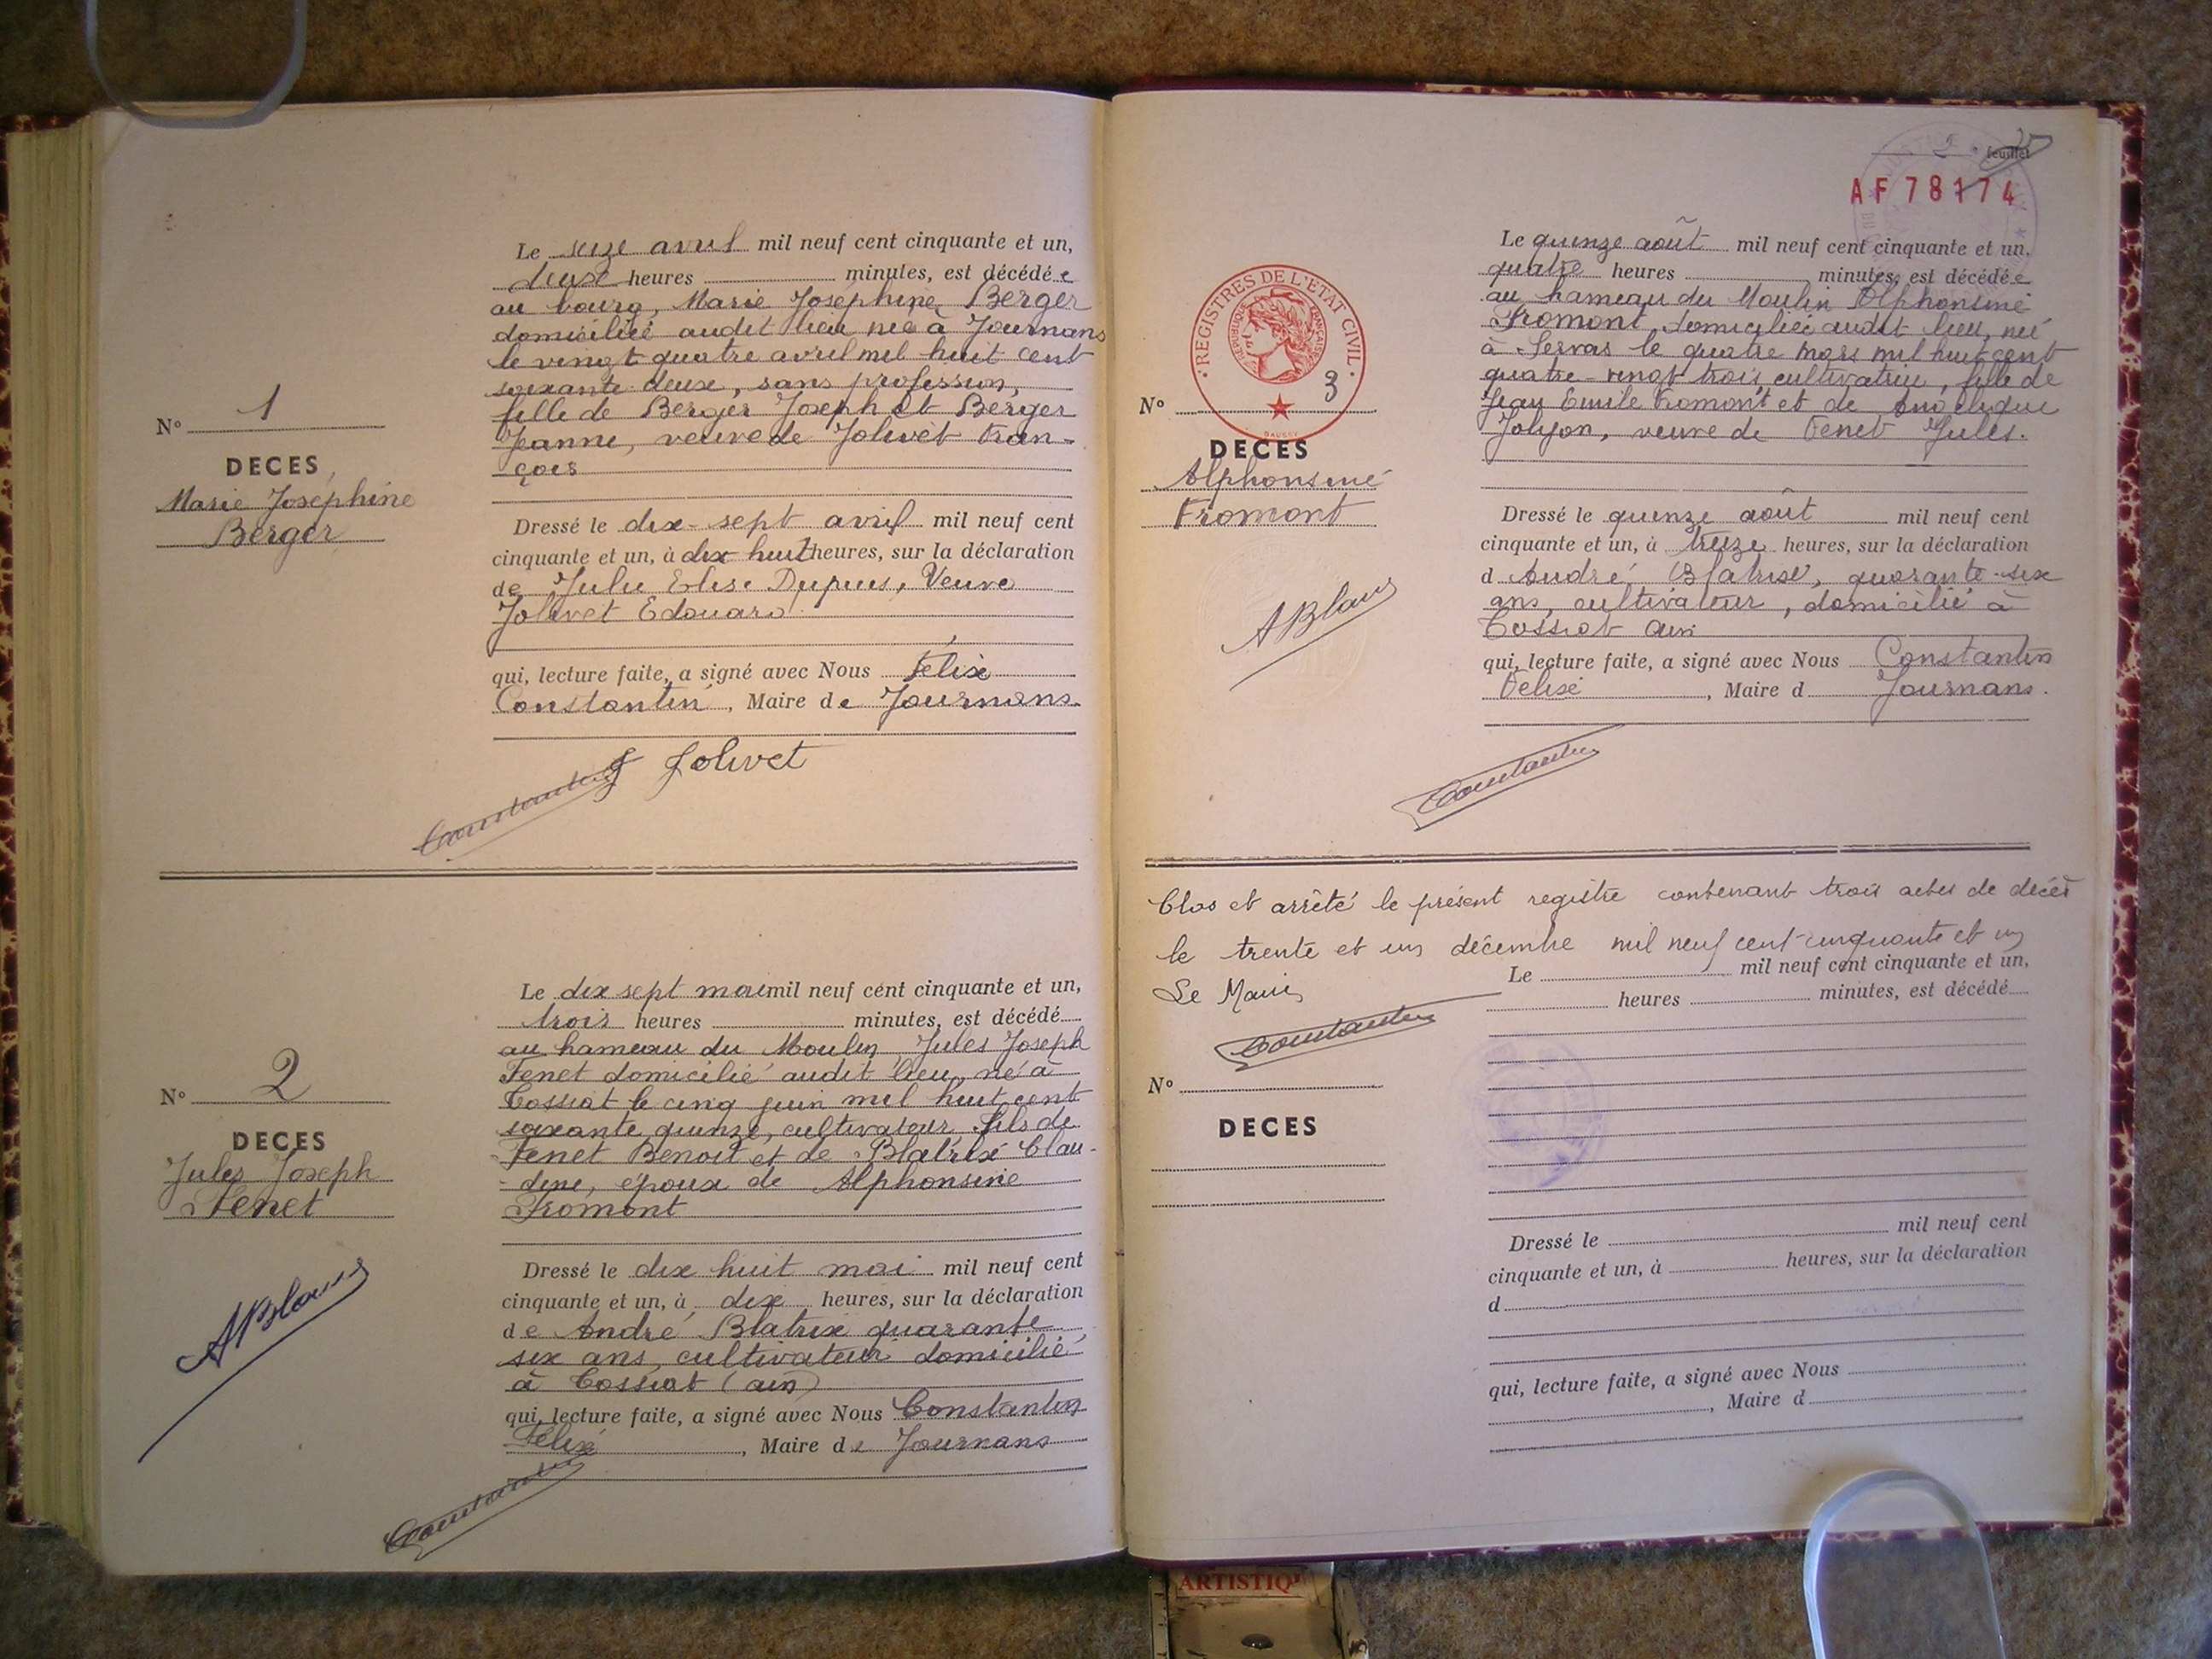 N° 1
DECES
Marie Joséphine
Berger
Le seize avril mil neuf cent cinquante et un,
deux heures minutes, est décédée
au bourg, Marie Joséphine Berger
domiciliée audit lieu née à Journans
le vingt quatre avril mil huit cent
soixante deux, sans profession,
fille de Berger Joseph et Berger
Jeanne, veuve de Jolivet Fran-
çois
Dressé le dix-sept avril mil neuf cent
cinquante et un, à dix huit heures, sur la déclaration
de Julie Elise Dupuis, Veuve
Jolivet Edouard
qui, lecture faite, a signé avec Nous Félix
Constantin, Maire de Journans
Constantin J Jolivet
N° 2
DECES
Jules Joseph
Fenet
ABlanc
Le dix sept mai mil neuf cent cinquante et un,
trois heures minutes, est décédé
au hameau du Moulin Jules Joseph
Fenet domicilié audit lieu, né à
Tossiat le cinq juin mil huit cent
soixante quinze, cultivateur fils de
Fenet Benoit et de Blatrix Clau-
-dine, époux de Alphonsine
Fromont
Dressé le dix huit mai mil neuf cent
cinquante et un, à dix heures, sur la déclaration
de André Blatrix quarante
six ans, cultivateur domicilié
à Tossiat (ain)
qui, lecture faite, a signé avec Nous Constantin
Félix, Maire de Journans
Constantin
2 feuillet
AF 78174
REGISTRES DE L'ETAT CIVIL
REPUBLIQUE FRANCAISE
N° 3
DECES
Alphonsine
Fromont
ABlanc
Le quinze août mil neuf cent cinquante et un,
quatre heures minutes, est décédée
au hameau du Moulin Alphonsine
Fromont, domiciliée audit lieu, née
à Servas le quatre mars mil huit cent
quatre-vingt trois, cultivatrice, fille de
Jean Emile Fromont et de
Jolyon, veuve de Fenet Jules.
Dressé le quinze août mil neuf cent
cinquante et un, à treize heures, sur la déclaration
d André Blatrix, quarante-six
ans, cultivateur, domicilié à
Tossiat Ain
qui, lecture faite, a signé avec Nous Constantin
Félix, Maire d Journans.
Constantin
Clos et arrêté le présent registre contenant trois actes de décès
le trente et un décembre mil neuf cent cinquante et un
Le Maire
Constantin
Le mil neuf cent cinquante et un,
heures minutes, est décédé
N°
DECES
Dressé le mil neuf cent
cinquante et un, à heures, sur la déclaration
d
qui, lecture faite, a signé avec Nous
, Maire d
ARTISTIQ